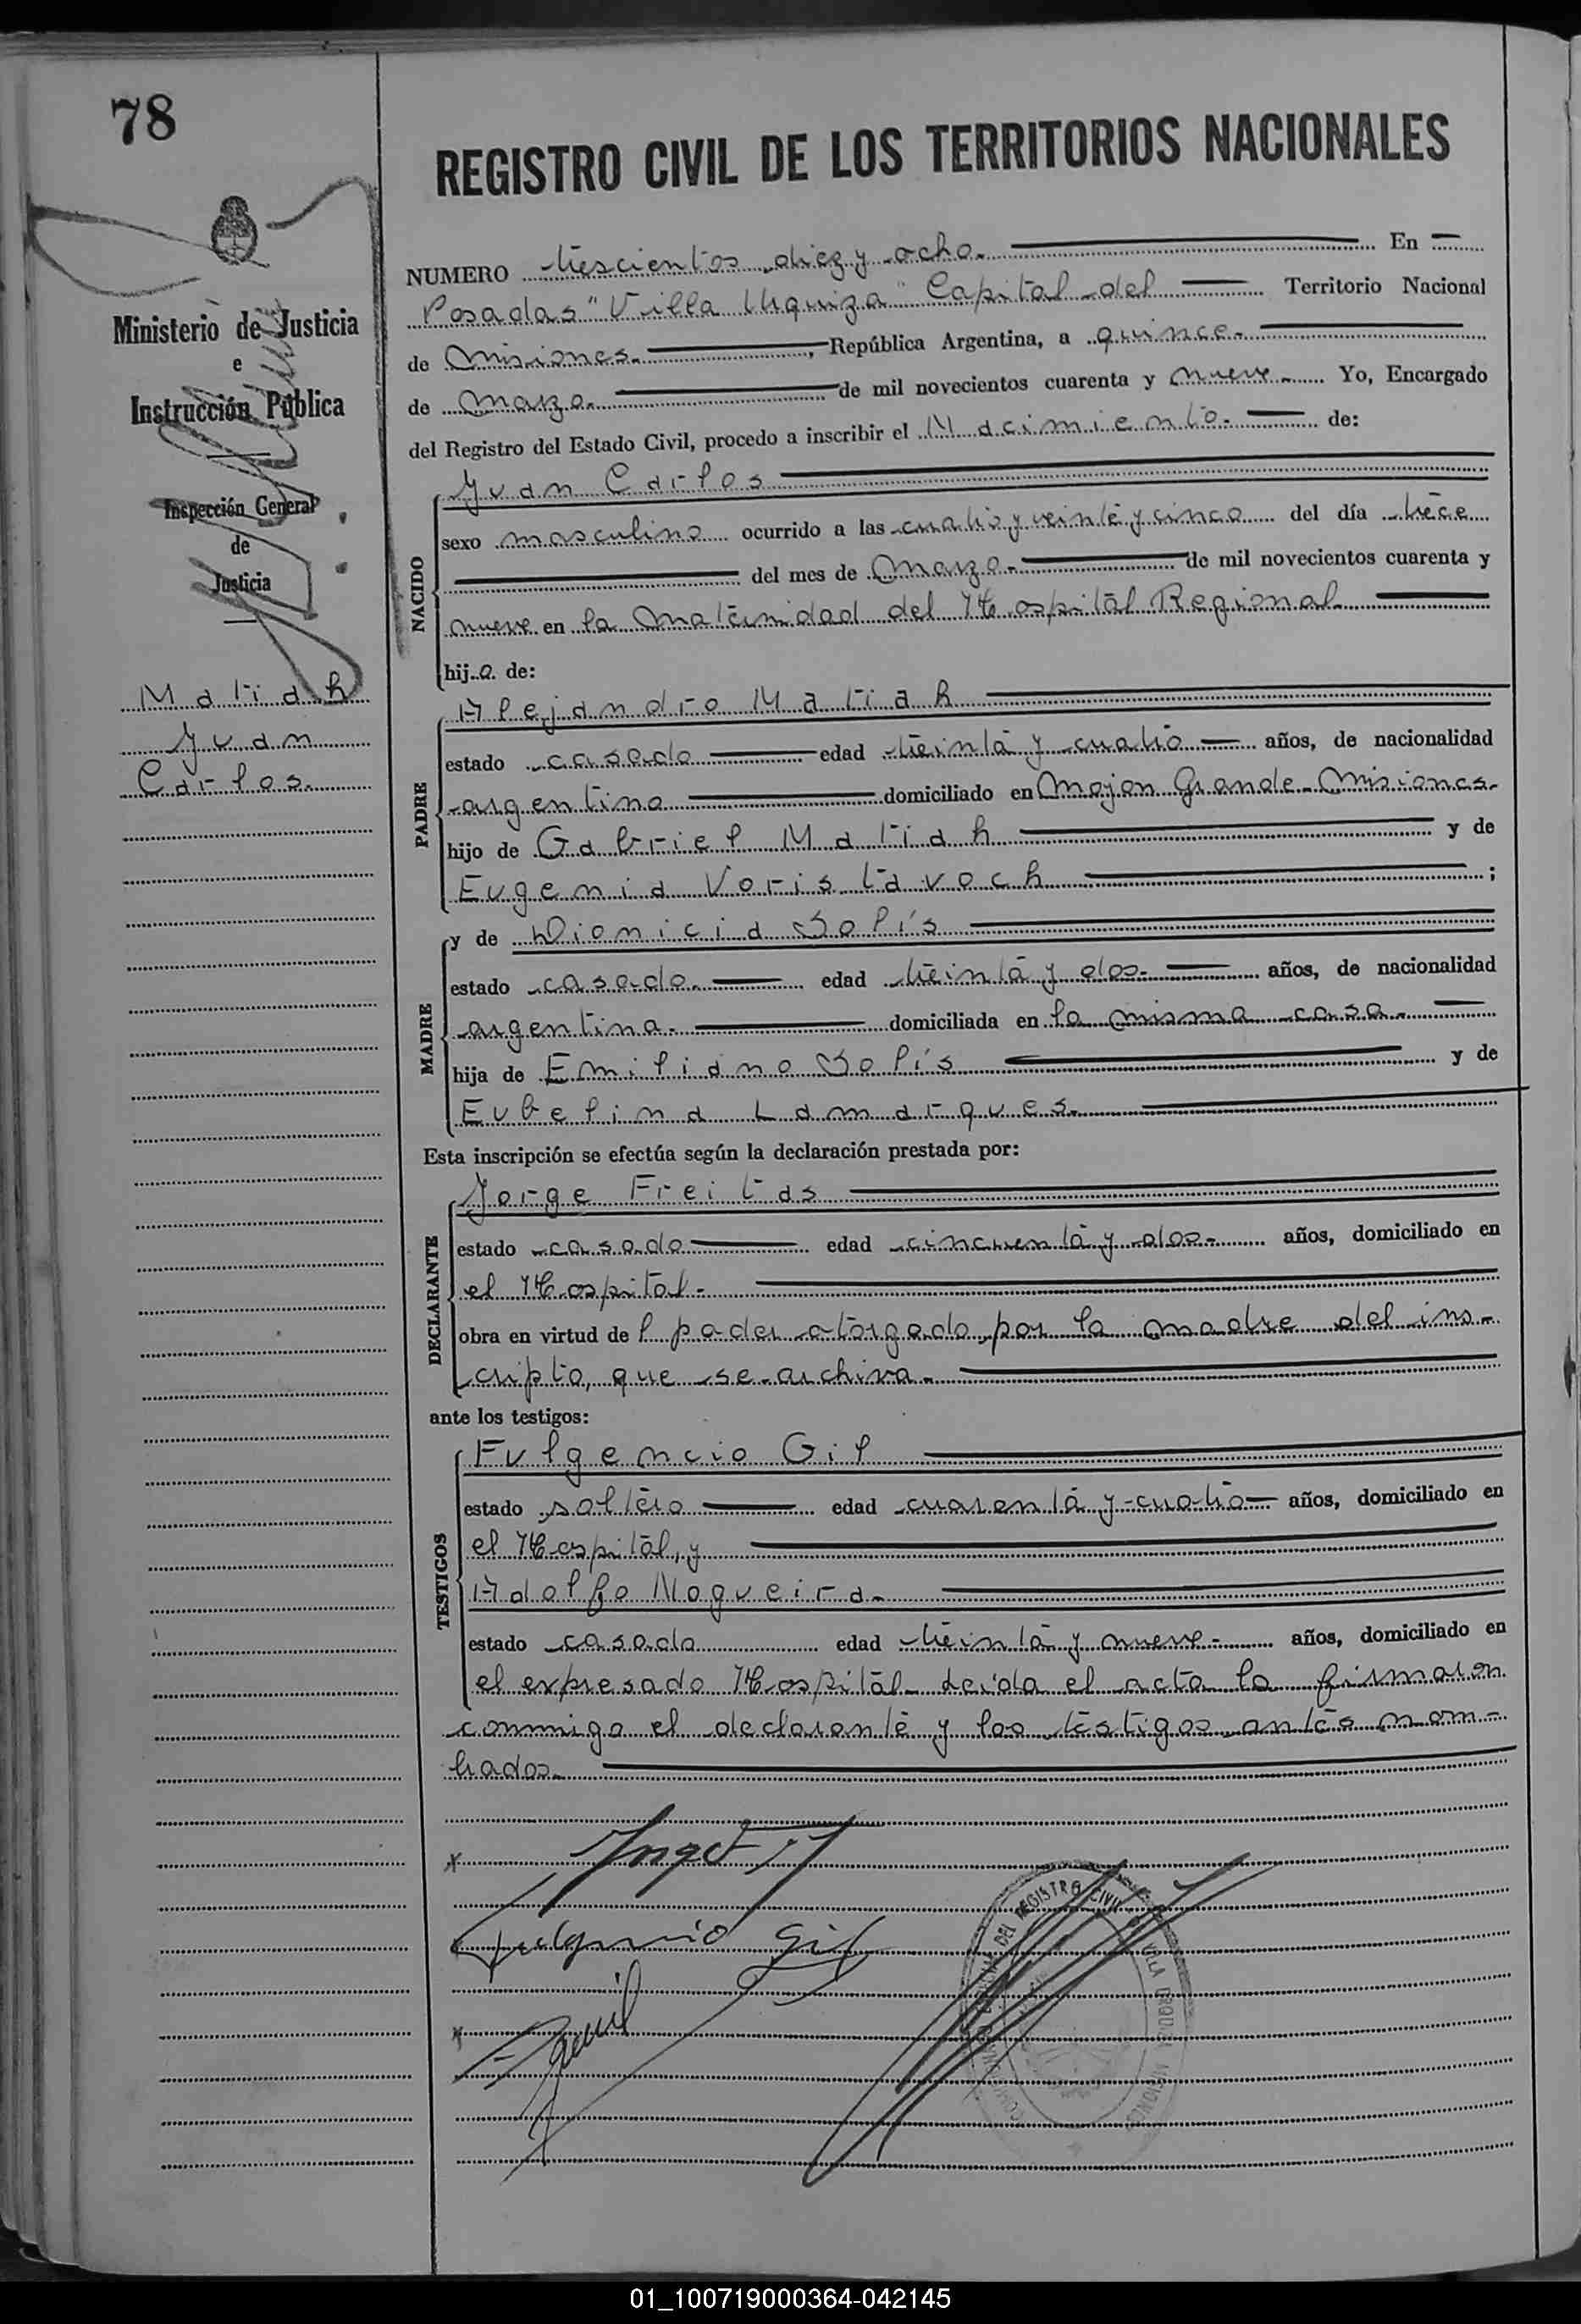 78
REGISTRO CIVIL DE LOS TERRITORIOS NACIONALES
Ministerio de Justicia
e
Instrucción Pública
Inspección General
de
Justicia
Matiah
Juan
Carlos.
NUMERO trescientos diez y ocho. En
Posadas "Villa Urquiza" Capital del Territorio Nacional
de Misiones. , República Argentina, a quince.
de Marzo. de mil novecientos cuarenta y nueve. Yo, Encargado
del Registro del Estado Civil, procedo a inscribir el Nacimiento. de:
NACIDO
Juan Carlos
sexo masculino ocurrido a las cuatro y veinte y cinco del día trece
del mes de Marzo. de mil novecientos cuarenta y
nueve en la Maternidad del Hospital Regional.
hijo. de:
PADRE
Alejandro Matiah
estado casado edad treinta y cuatro años, de nacionalidad
argentino domiciliado en Mojon Grande. Misiones.
hijo de Gabriel Matiah y de
Eugenia Voristavoch ;
MADRE
y de Dionicia Solís
estado casada. edad treinta y dos. años, de nacionalidad
argentina. domiciliada en la misma casa.
hija de Emiliano Solís y de
Eubelina Lamarques.
Esta inscripción se efectúa según la declaración prestada por:
DECLARANTE
Jorge Freitas
estado casado edad cincuenta y dos. años, domiciliado en
el Hospital.
obra en virtud de l poder otorgado, por la madre del ins-
cripto, que se archiva.
ante los testigos:
TESTIGOS
Fulgencio Gil
estado soltero edad cuarenta y cuatro años, domiciliado en
el Hospital, y
Adolfo Nogueira.
estado casado edad treinta y nueve. años, domiciliado en
el expresado Hospital. Leída el acta la firmaron
conmigo el declarante y los testigos antes nom-
brados.
Fulgencio Gil
DEL REGISTRO CIVIL
VILLA URQUIZA MISIONES
01_100719000364-042145